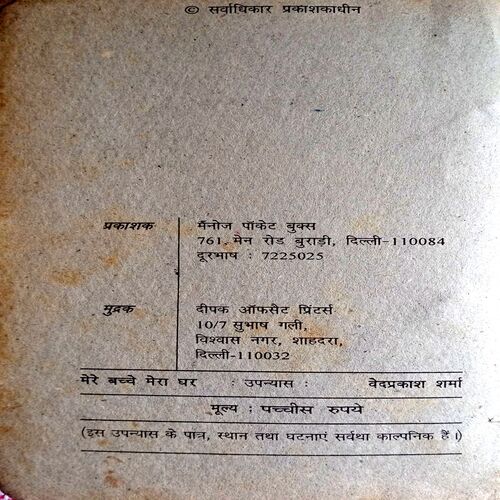 © सर्वाधिकार प्रकाशकाधीन
प्रकाशक
मैनोज पॉकेट बुक्स
761, मेन रोड बुराड़ी, दिल्ली-110084
दूरभाष : 7225025
मुद्रक
दीपक ऑफसैट प्रिंटर्स
10/7 सुभाष गली,
विश्वास नगर, शाहदरा,
दिल्ली-110032
मेरे बच्चे मेरा घर : उपन्यास : वेदप्रकाश शर्मा
मूल्य : पच्चीस रुपये
(इस उपन्यास के पात्र, स्थान तथा घटनाएं सर्वथा काल्पनिक हैं।)